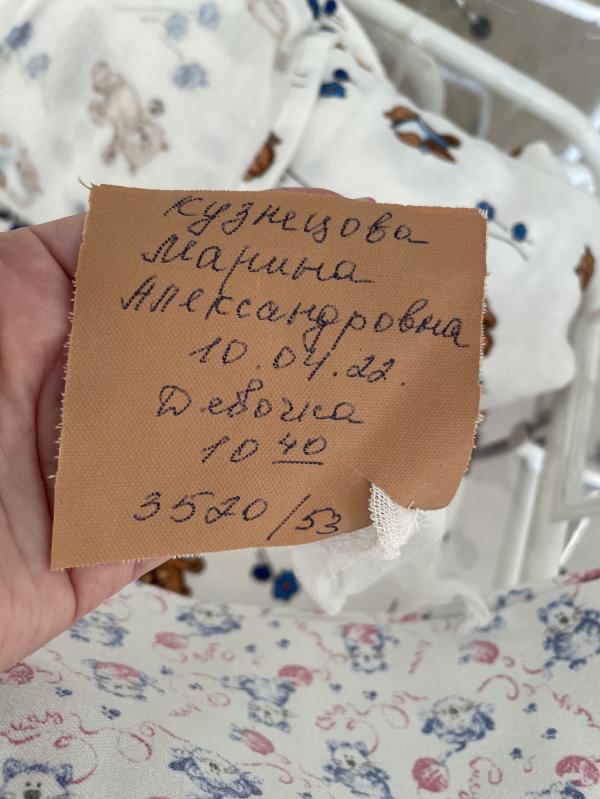 Кузнецова
Марина
Александровна
10.04.22.
Девочка
10 40
3520/53